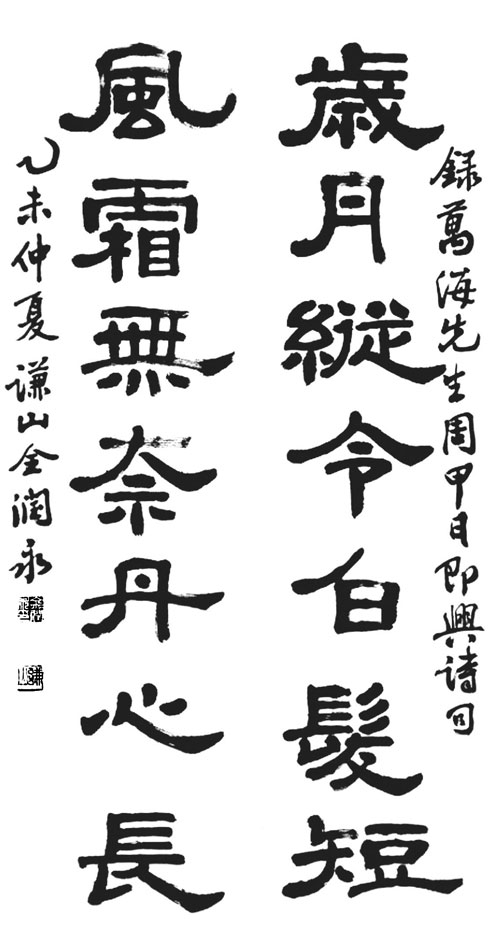 錄萬海先生周甲日即興詩句
歲月縱令白髮短
風霜無奈丹心長
乙未仲夏謙山全潤永